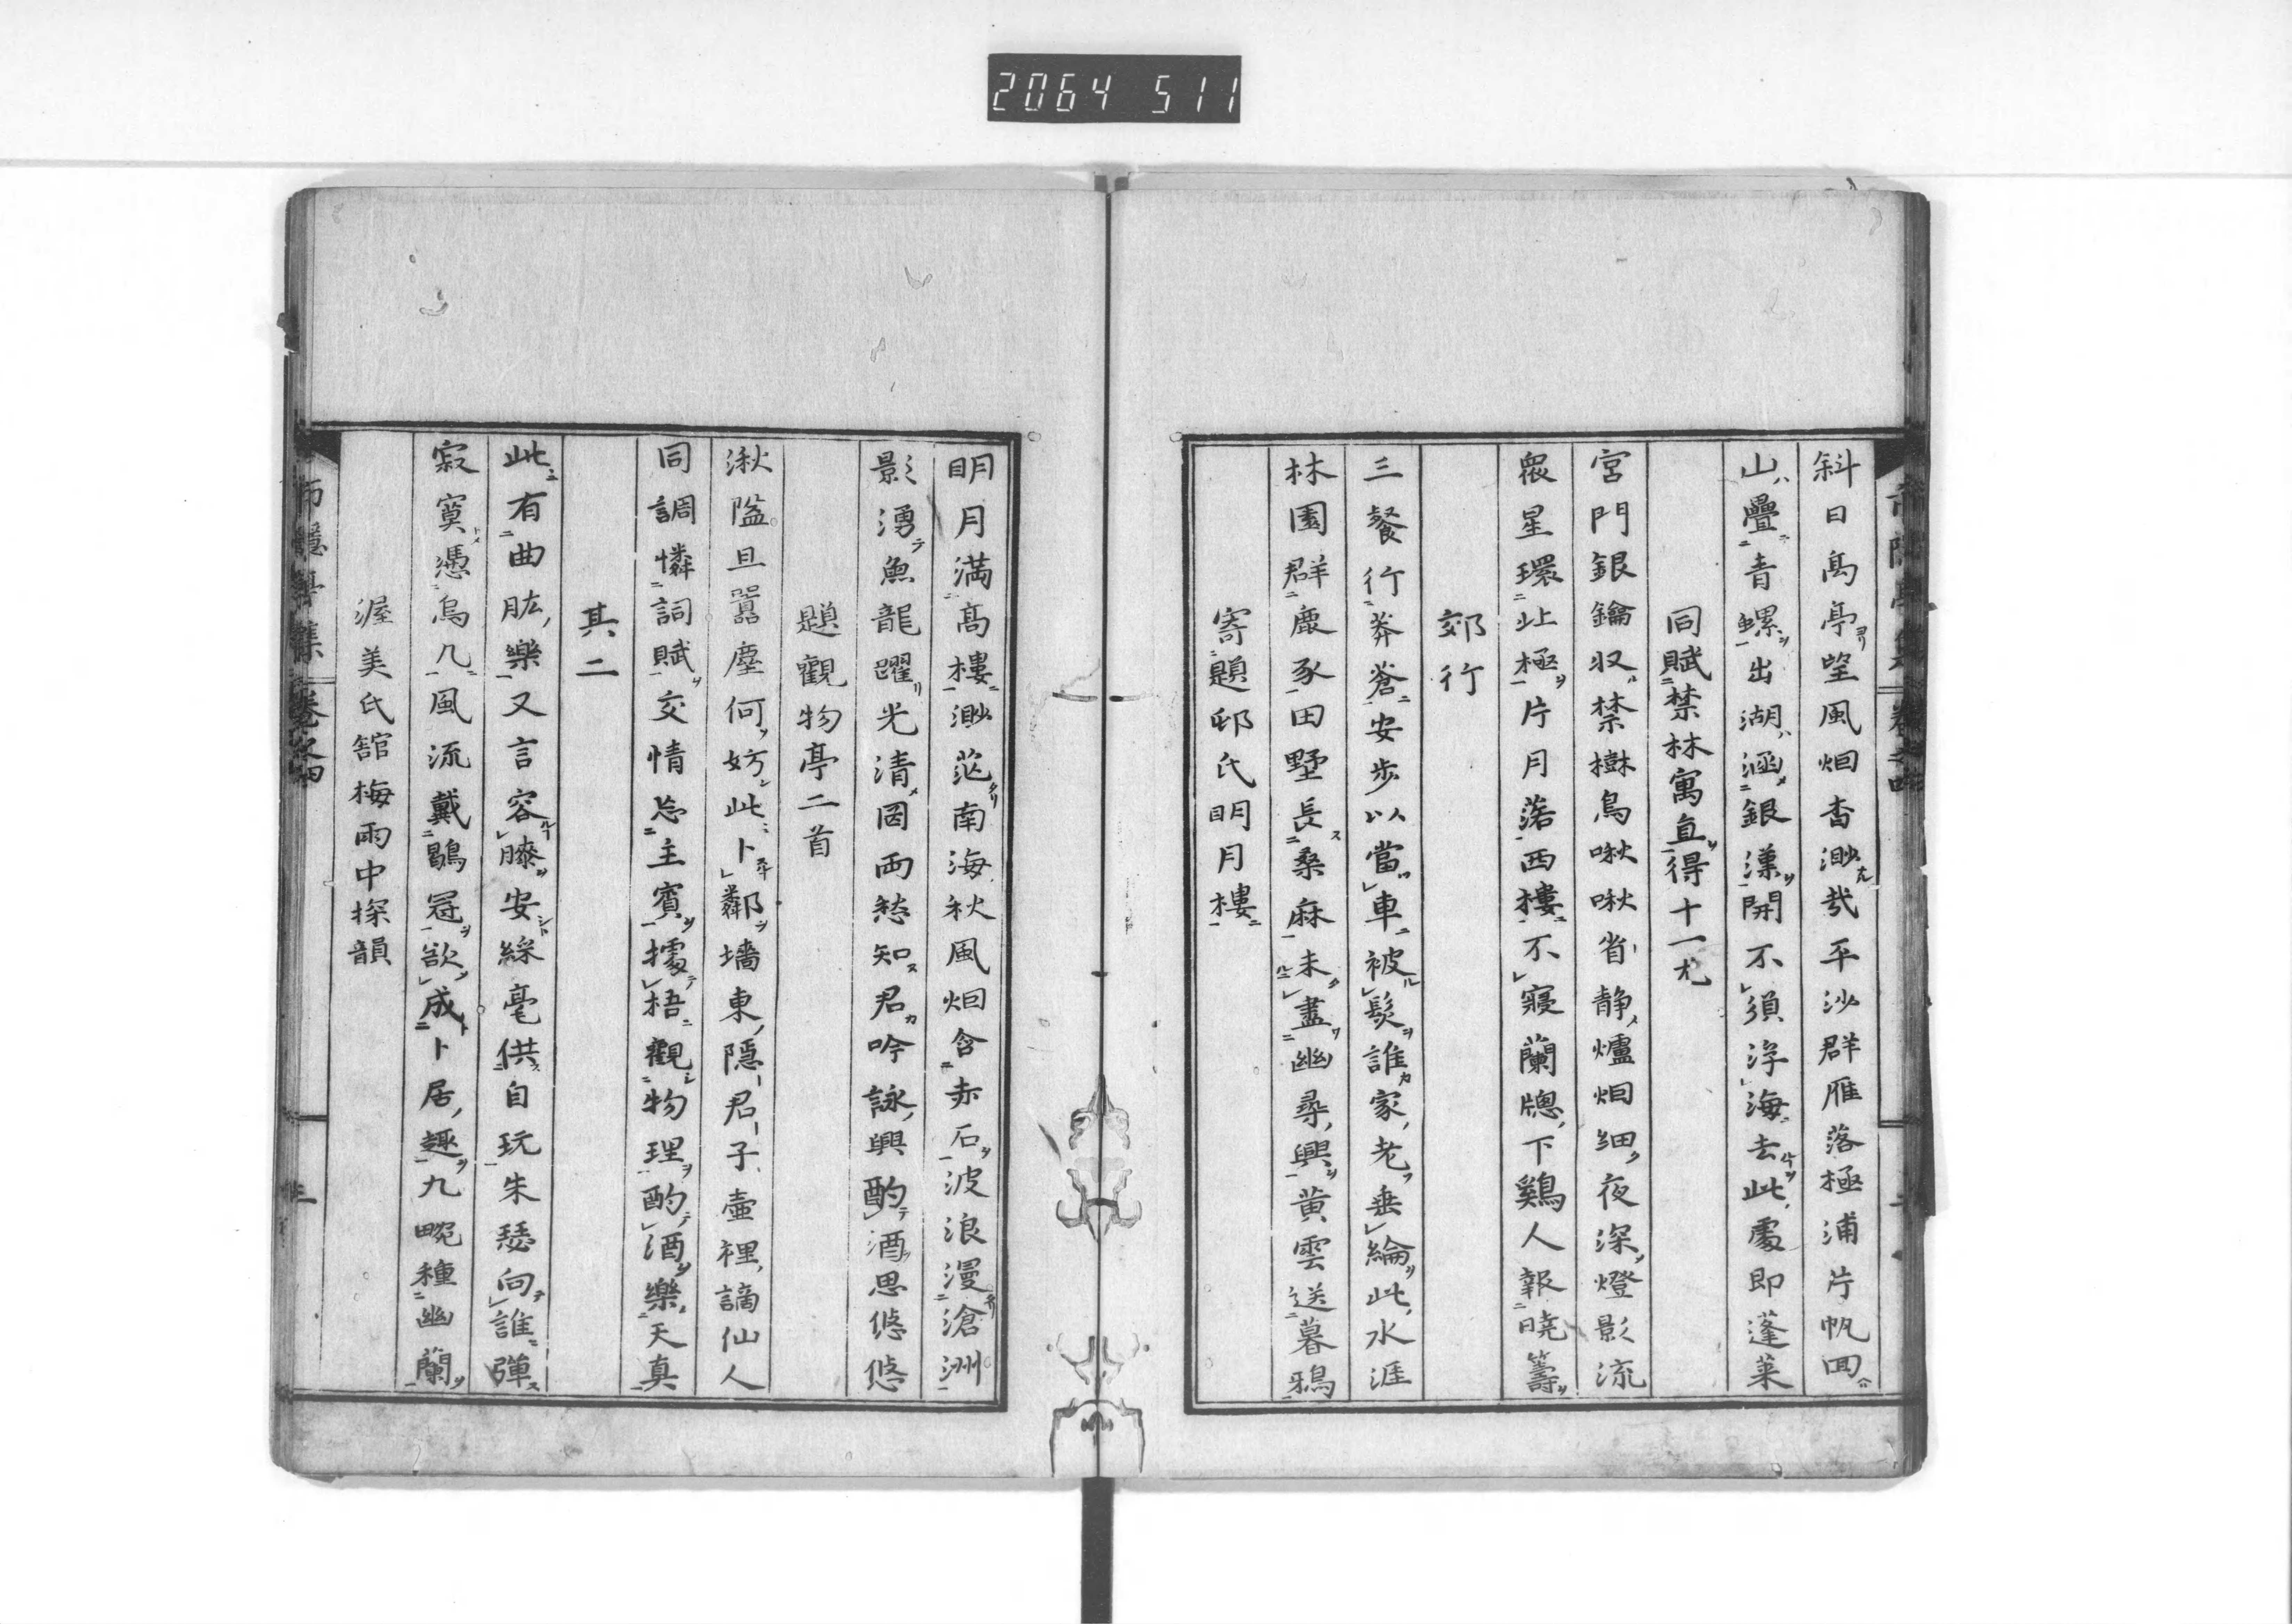 2064 511
斜日高亭望風烟杳渺哉平沙群雁落極浦片帆回
山疊青螺出湖涵銀漢開不須浮海去此處即蓬萊
同賦禁林寓直得十一尤
宮門銀鑰収禁樹鳥啾啾省静爐烟細夜深燈影流
衆星環北極片月落西樓不寢蘭牕下鷄人報曉籌
郊行
三餐行莽蒼安步以當車被髮誰家老垂綸此水涯
林園群鹿豕田墅長桑麻未盡幽尋興黃雲送暮鴉
寄題邸氏明月樓
明月滿高樓渺茫南海秋風烟含赤石波浪漫滄洲
影湧魚龍躍光清罔兩愁知君吟詠興酌酒思悠悠
題觀物亭二首
湫隘且囂塵何妨此卜鄰墻東隱君子壷裡謫仙人
同調憐詞賦交情忘主賓據梧觀物理酌酒樂天真
其二
此有曲肱樂又言容膝安綵毫供自玩朱瑟向誰彈
寂寞憑烏几風流戴鶡冠欲成卜居趣九畹種幽蘭
渥美氏舘梅雨中探韻
集 卷之四
三